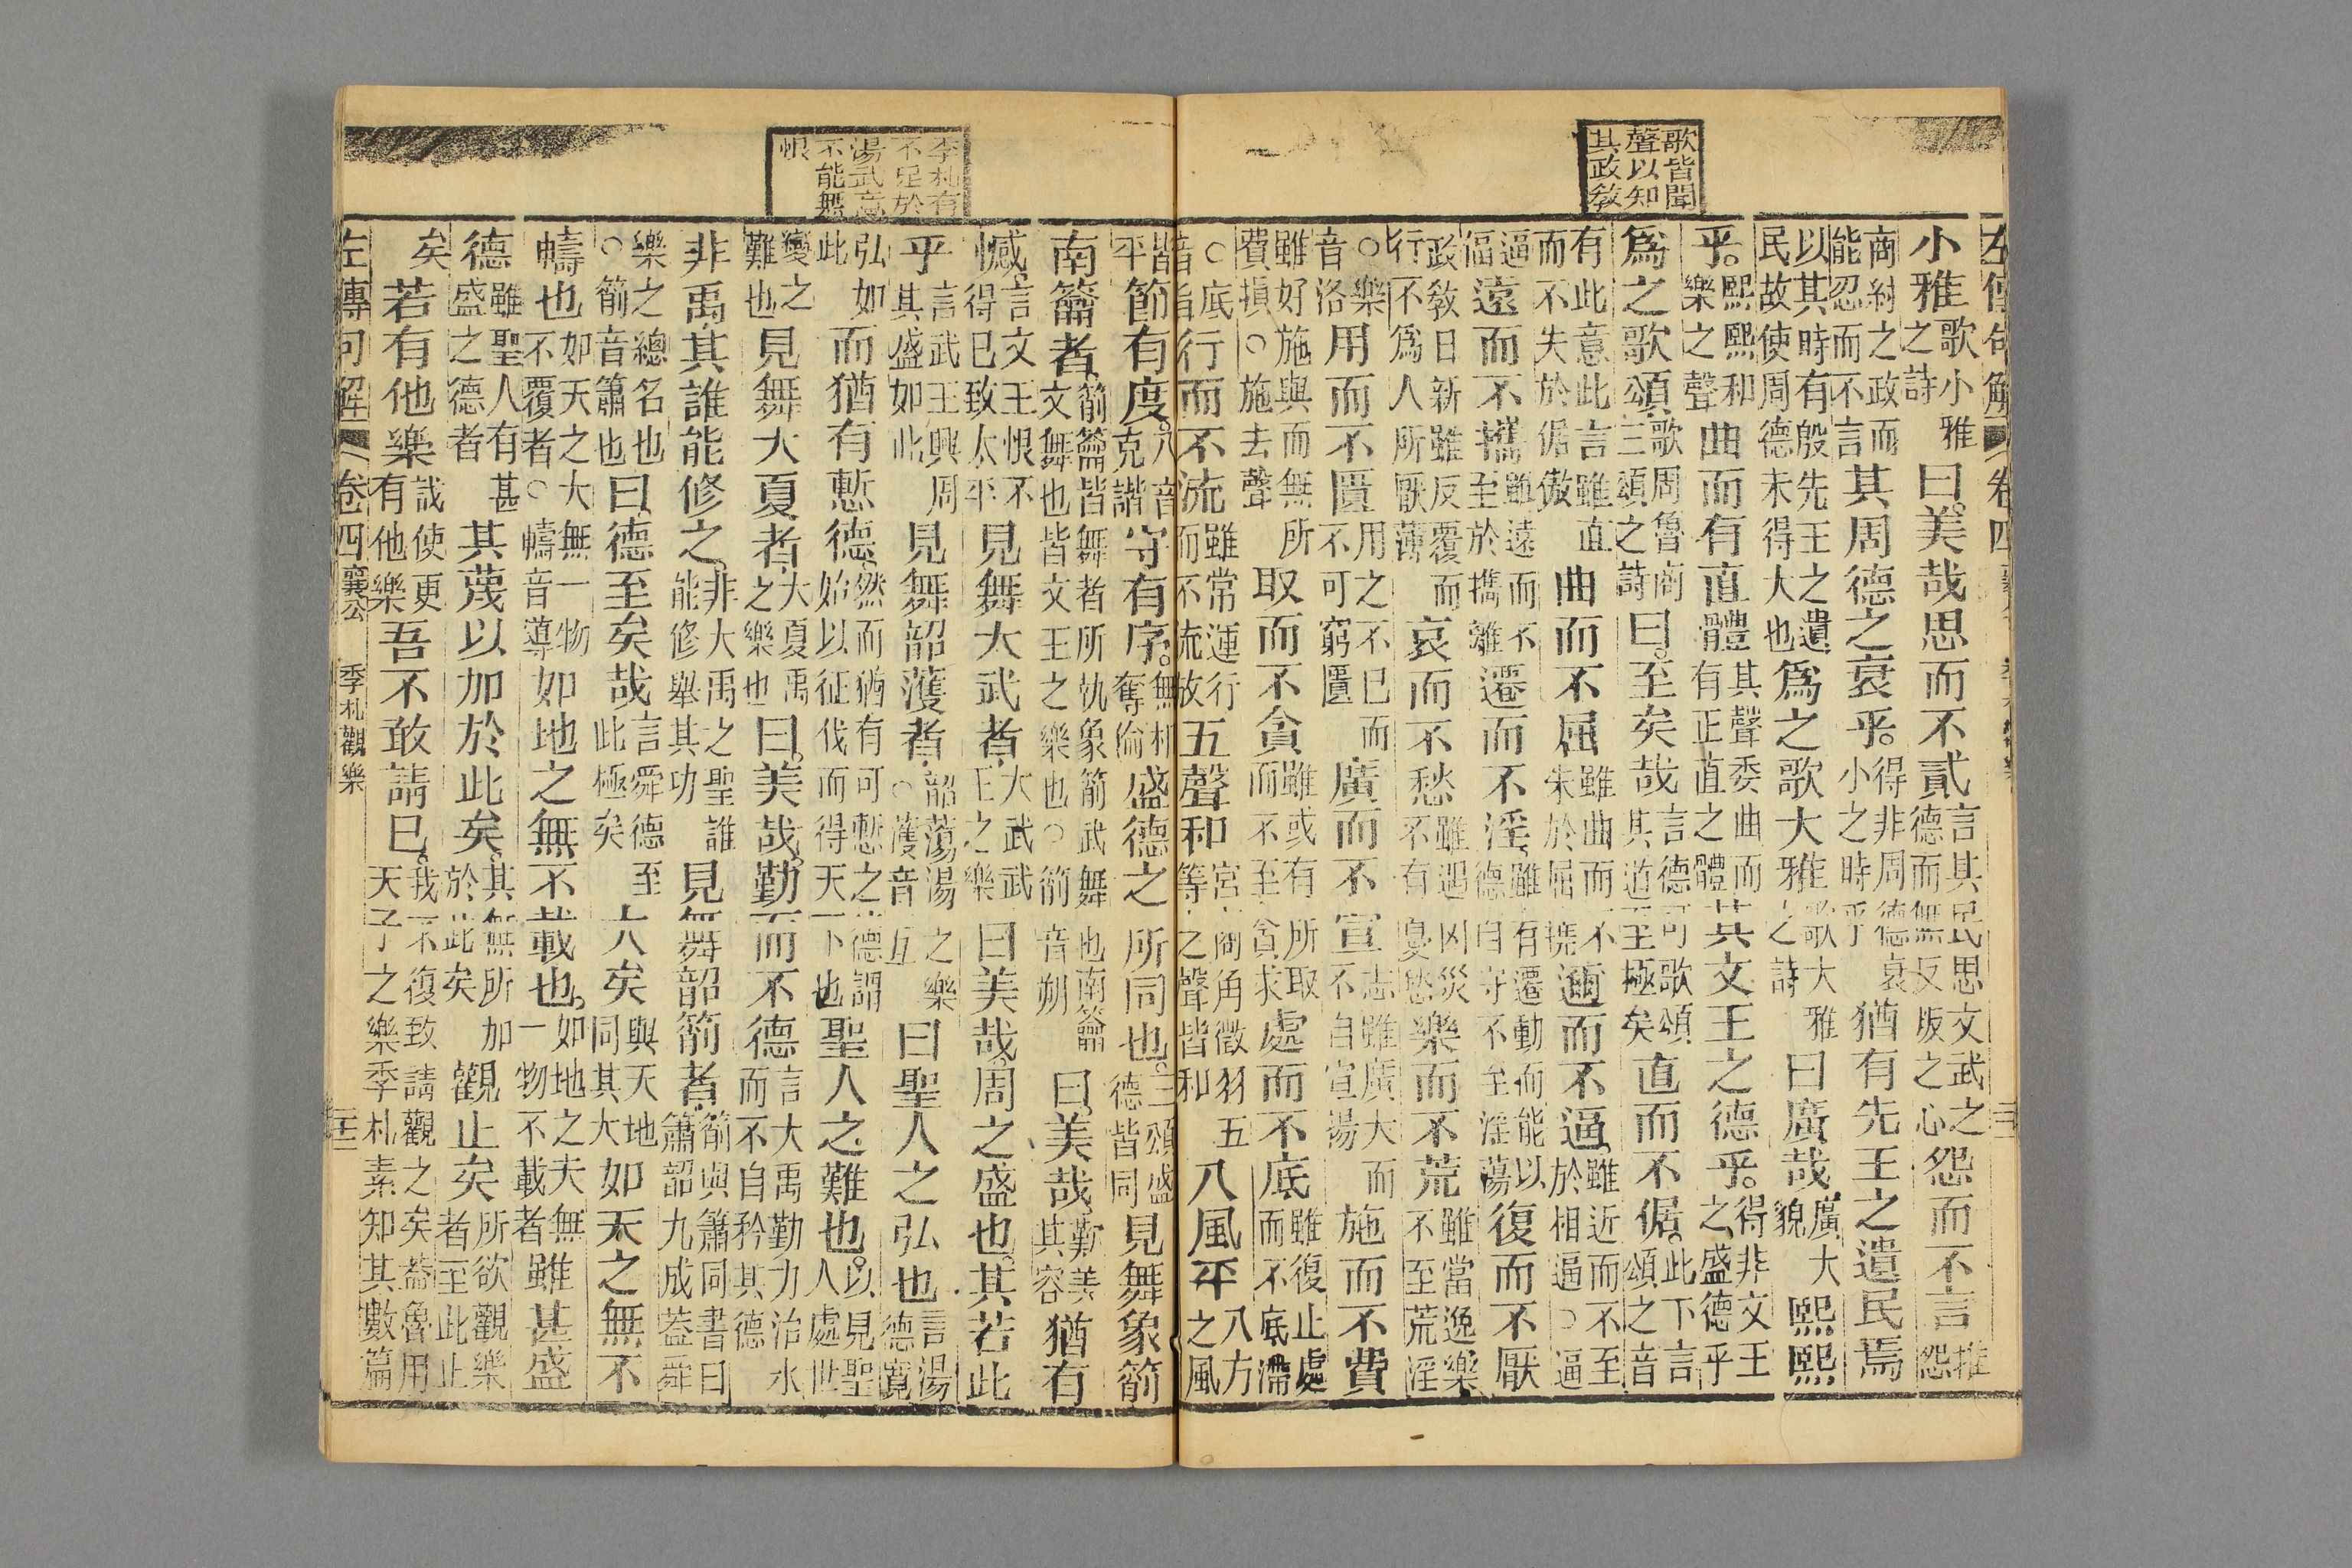 歌皆聞
聲以知
其政教
左傳句解 卷四
小雅歌小雅之詩曰。美哉思而不貳言其民思文武之德而無反叛之心怨而不言推怨
商紂之政而能忍而不言其周德之衰乎。得非周德衰小之時乎猶有先王之遺民焉
以其時有殷先王之遺民故使周德未得大也爲之歌大雅歌大雅之詩曰廣哉廣大貌熙熙
乎。熙熙和樂之聲曲而有直體其聲委曲而有正直之體其文王之德乎。得非文王之盛德乎
爲之歌頌歌周魯商三頌之詩曰。至矣哉言德可歌頌其道至極矣直而不倨。此下言頌之音
有此意此言雖直而不失於倨傲曲而不屈雖曲而不朱於屈撓邇而不逼雖近而不至於相逼○逼
逼偪遠而不攜雖遠而不至於攜離遷而不淫雖有遷動而能以德自守不至淫蕩復而不厭
政教日新雖反覆而行不爲人所厭薄哀而不愁雖遇凶災不有憂愁樂而不荒雖當逸樂不至荒淫
○樂音洛用而不匱用之不已而不可窮匱廣而不宣志雖廣大而不自宣揚施而不費
雖好施與而無所費損○施去聲取而不貪雖或有所取而不至貪求處而不底雖復止處而不底滯
○底音旨行而不流雖常運行而不流放五聲和宮商角徵羽五等之聲皆和八風平八方之風
季札有
不足於
湯武意
不能無
恨
皆平節有度。八音克諧守有序。無相奪倫盛德之所同也。三頌盛德皆同見舞象箾
南籥者箾籥皆舞者所執象箾武舞也南籥文舞也皆文王之樂也○箾音朔曰。美哉歎美其容猶有
憾言文王恨不得已致太平見舞大武者大武武王之樂曰美哉周之盛也其若此
乎言武王興周其盛如此見舞韶濩者韶濩湯之樂○濩音互曰聖人之弘也言湯德寬
弘如此而猶有慙德然而猶有可慙之德謂始以征伐而得天下也聖人之難也。以見聖人處世
變之難也見舞大夏者大夏禹之樂也曰。美哉。勤而不德言大禹勤力治水而不自矜其德
非禹其誰能修之。非大禹之聖誰能修舉其功見舞韶箾者箾與簫同書曰簫韶九成葢舜
樂之總名也○箾音簫也曰德至矣哉言舜德至此極矣大矣與天地同其大如天之無不
幬也如天之大無一物不覆者○幬音導如地之無不載也。如地之大無一物不載者雖甚盛
德雖聖人有甚盛之德者其蔑以加於此矣。其無所加於此矣觀止矣所欲觀樂者至此止
矣若有他樂哉使更有他樂吾不敢請已。我不復致請觀之矣葢魯用天子之樂季札素知其數篇
左傳句解 卷四 襄公 季札觀樂